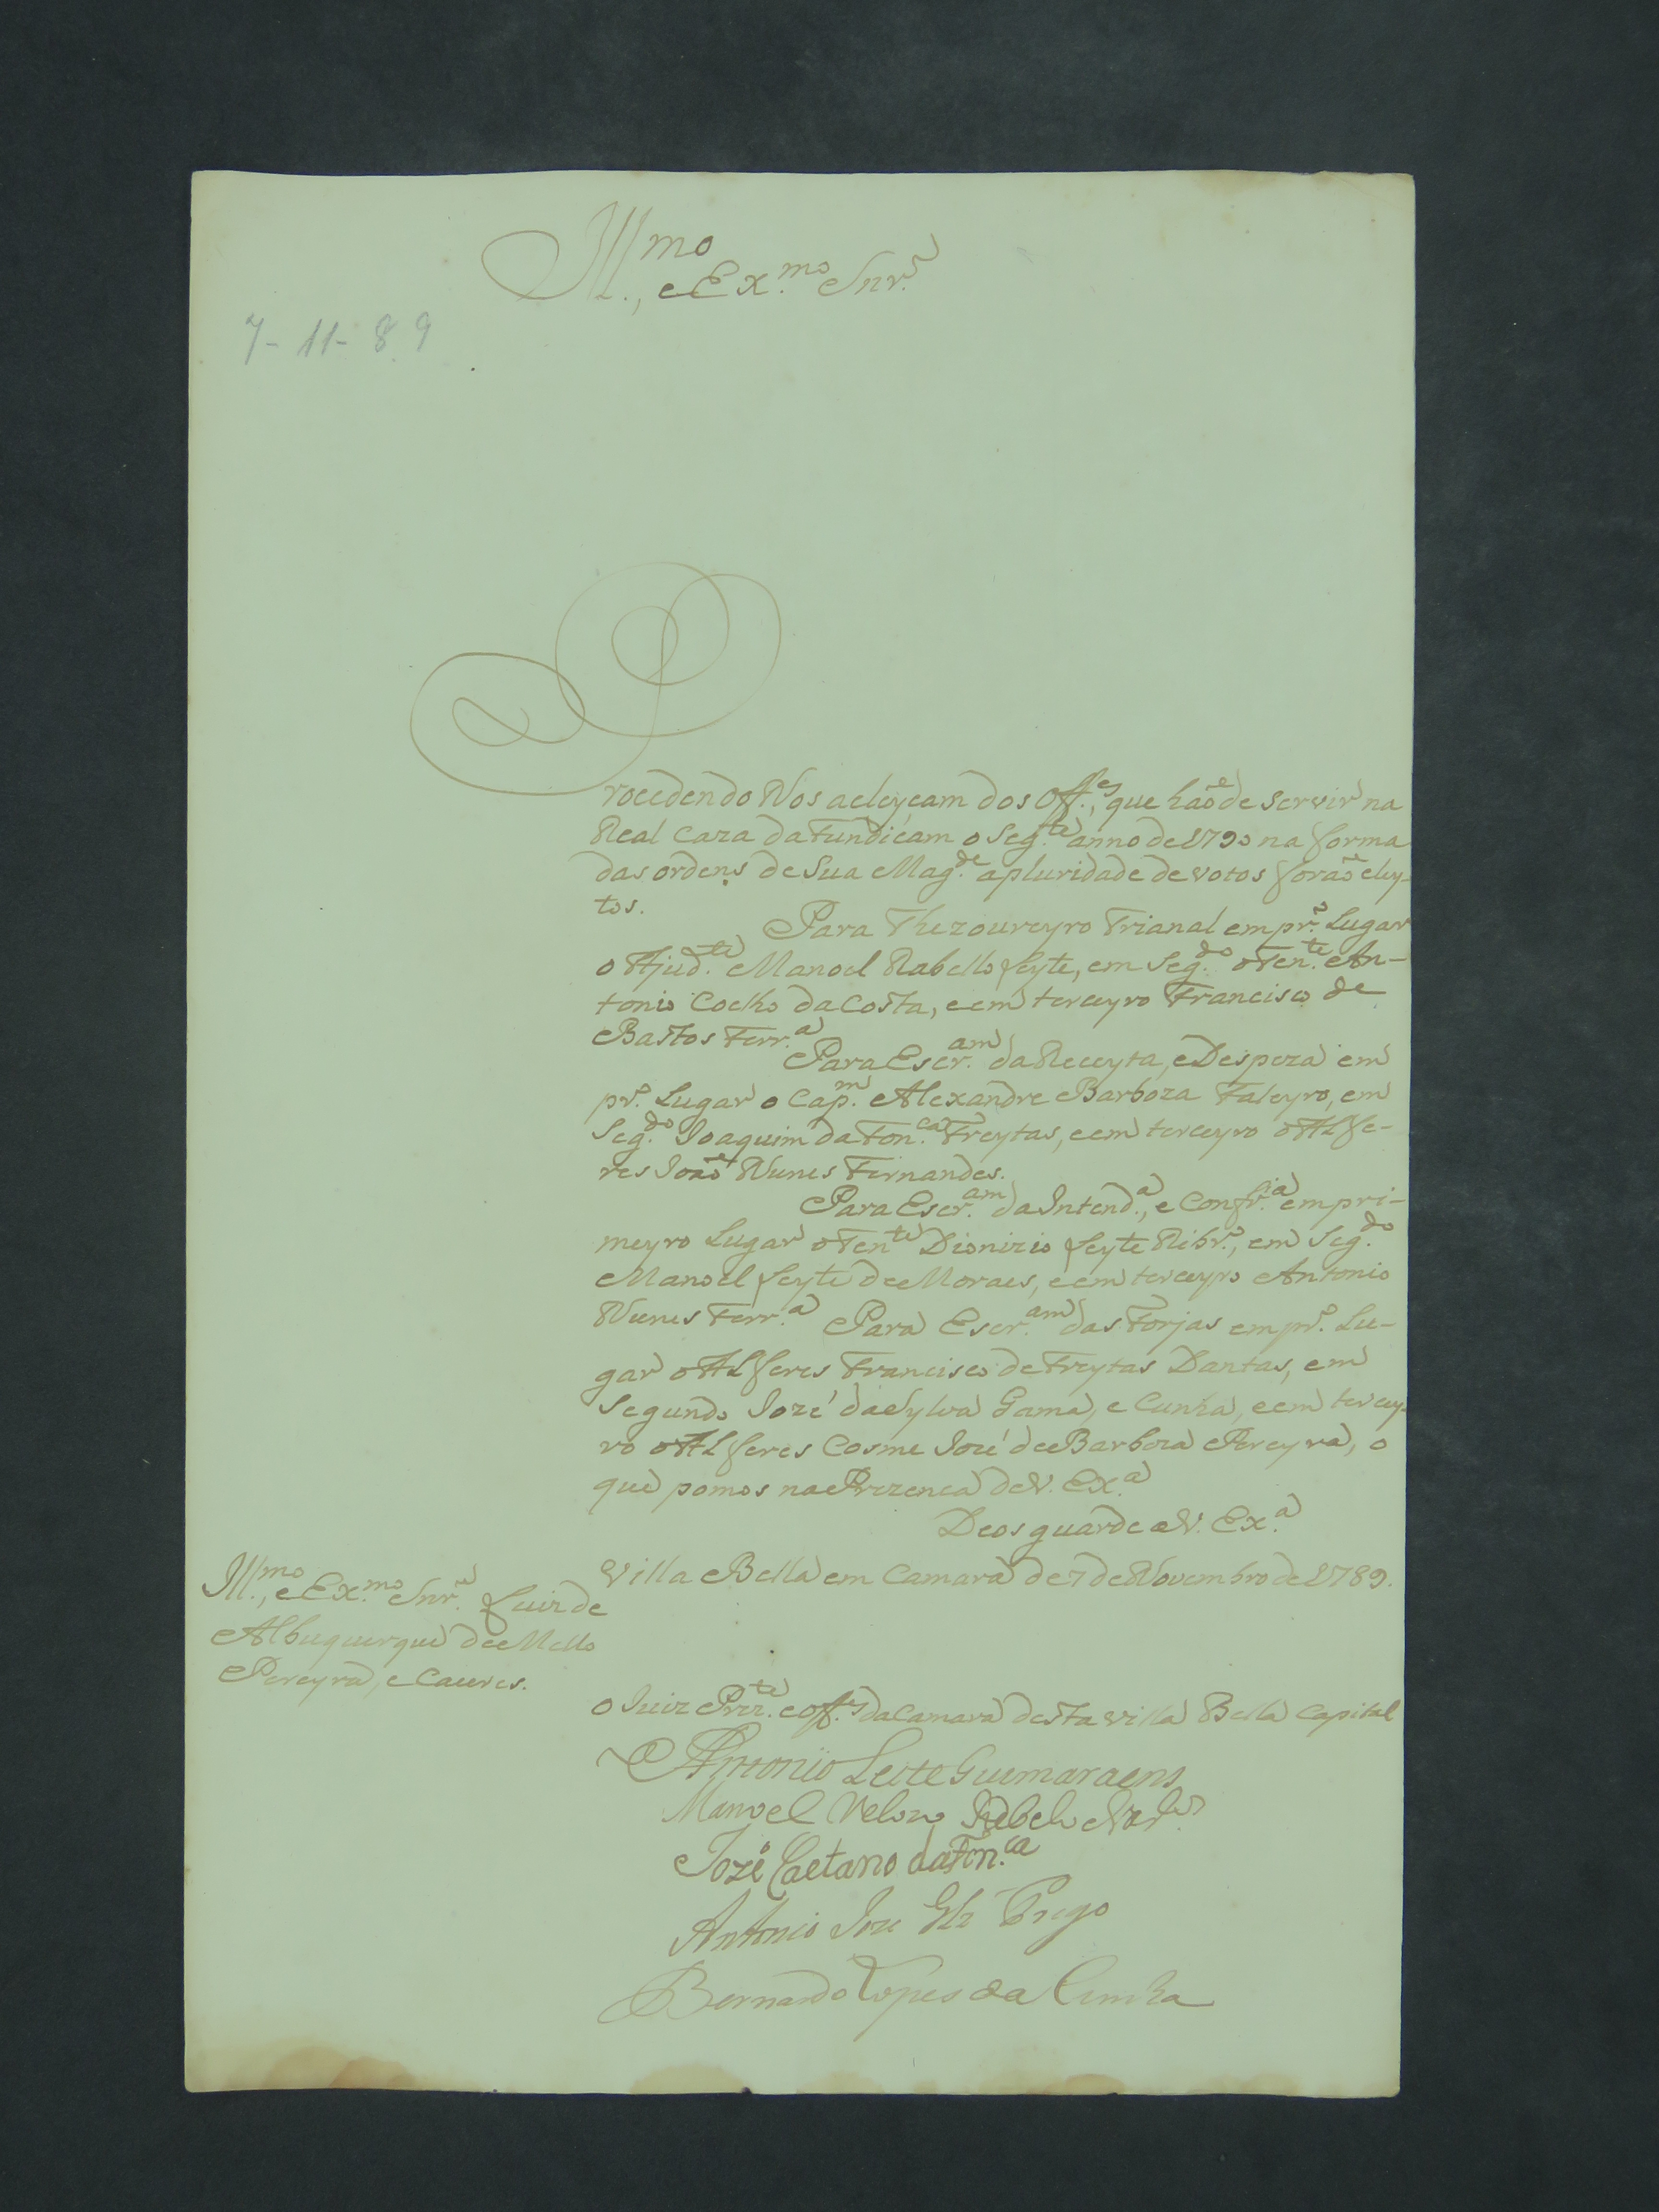 Ill.mo, e Ex.mo Snr.
7-11-89
Procedendo Nos aeleyçam dos Off.es, que haõ de servir na
Real Caza da Fundicam o Seg.te anno de 1790 na forma
das ordens de Sua Mag.de apluridade de votos foraõ eley-
tos.
Para Thezoureyro Trianal em pr.o Lugar
o Ajud.te Manoel Rabello Leyte, em Seg.do o Ten.te An-
tonio Coelho da Costa, e em terceyro Francisco de
Bastos Ferr.a
Para Escr.am da Receyta, e Despeza em
pr.o Lugar o Cap.m Alexandre Barboza Faleyro, em
Seg.do Joaquim da Fon.ca Freytas, e em terceyro o Alfe-
res Joaõ Nunes Fernandes.
Para Escr.am da Intend.a, e Confr.a em pri-
meyro Lugar o Ten.te Dionizio Leyte Ribr.o, em Seg.do
Manoel Leyte de Moraes, e em terceyro Antonio
Nunes Ferr.a Para Escr.am das Forjas em pr.o Lu-
gar o Alferes Francisco de Freytas Dantas, em
Segundo Jozé da Sylva Gama, e Cunha, e em tercey-
ro o Alferes Cosme Jozé de Barboza Pereyra, o
que pomos na Prezenca de V. Ex.a
Deos guarde a V. Ex.a
Villa Bella em Camara de 7 de Novembro de 1789.
Ill.mo, e Ex.mo Snr. Luiz de
Albuquerque de Mello
Pereyra, e Caceres.
o Juiz Prez.te e off.es da Camara desta villa Bella Capital
Antonio Leite Guimaraens
Manoel Velozo Rebelo
Jozé Caetano da Fon.ca
Antonio Joze Glz Prego
Bernardo Lopes da Cunha